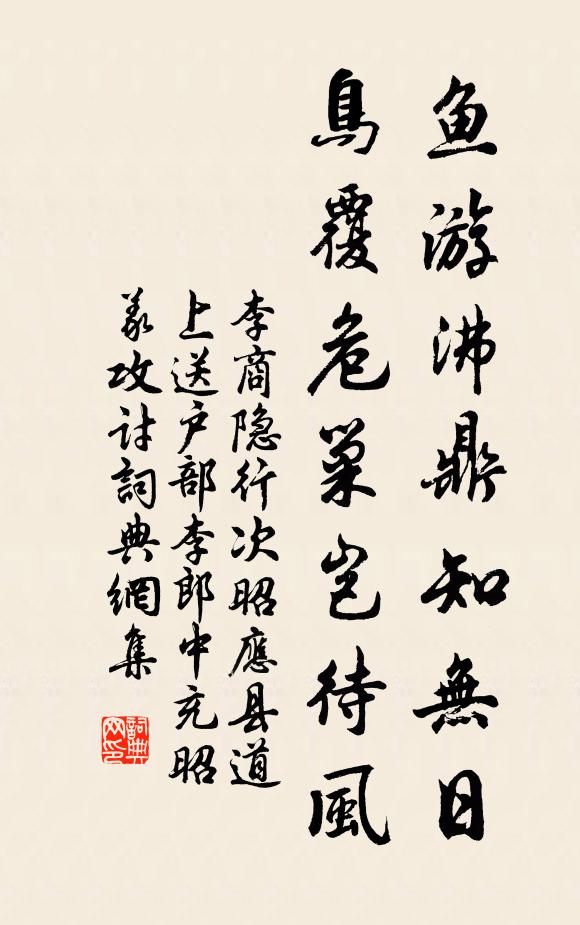 鱼游沸鼎知無日
鳥覆危巢岂待風
李商隐行次昭應县道
上送户部李郎中充昭
義攻讨詞典網集
詞典
网印